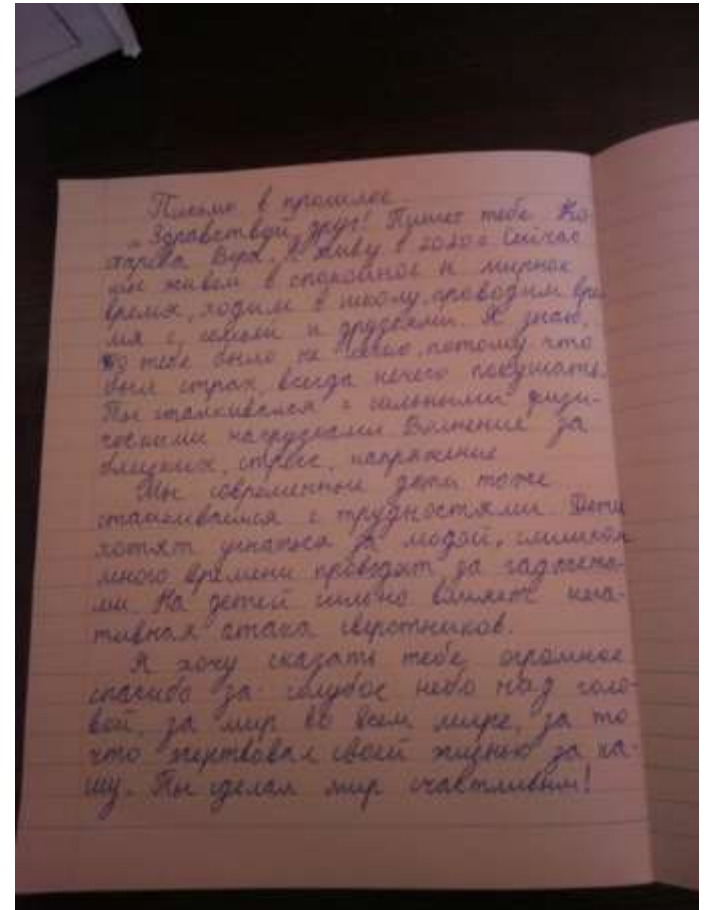 Письмо в прошлое
„Здравствуй, друг! Пишет тебе Ко-
харева Вера. Я живу в 2020г Сейчас
мы живем в спокойное и мирное
время, ходим в школу, проводим вре
мя с семьей и друзьями. Я знаю,
тебе было не легко, потому что
был страх, всегда нечего покушать.
Ты сталкивался с сильными физи-
ческими нагрузками Волнение за
близких, стресс, напряжение
Мы современные дети тоже
сталкиваемся с трудностями. Дети
хотят угнаться за модой, слишком
много времени проводят за гаджета-
ми. На детей сильно влияет нега-
тивная атака сверстников.
Я хочу сказать тебе, огромное
спасибо за голубое небо над голо-
вой, за мир во всем мире, за то
что жертвовал своей жизнью за на-
шу. Ты сделал мир счастливым!